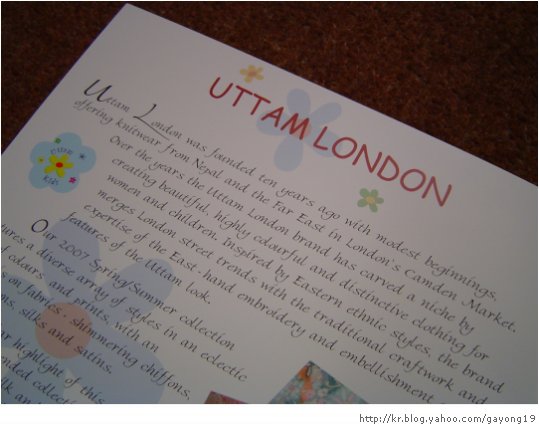 UTTAM LONDON
Uttam London was founded ten years ago with modest beginnings,
offering knitwear from Nepal and the Far East in London's Camden Market.
Over the years the Uttam London brand has carved a niche by
creating beautiful, highly colourful and distinctive clothing for
women and children. Inspired by Eastern ethnic styles, the brand
merges London street trends with the traditional craftwork and
expertise of the East - hand embroidery and embellishment
features of the Uttam look.
UTTAM
KIDS
Our 2007 Spring/Summer collection
a diverse array of styles in an eclectic
of colours and prints, with an
on fabrics - shimmering chiffons,
silks and satins.
highlight of this
http://kr.blog.yahoo.com/gayong19